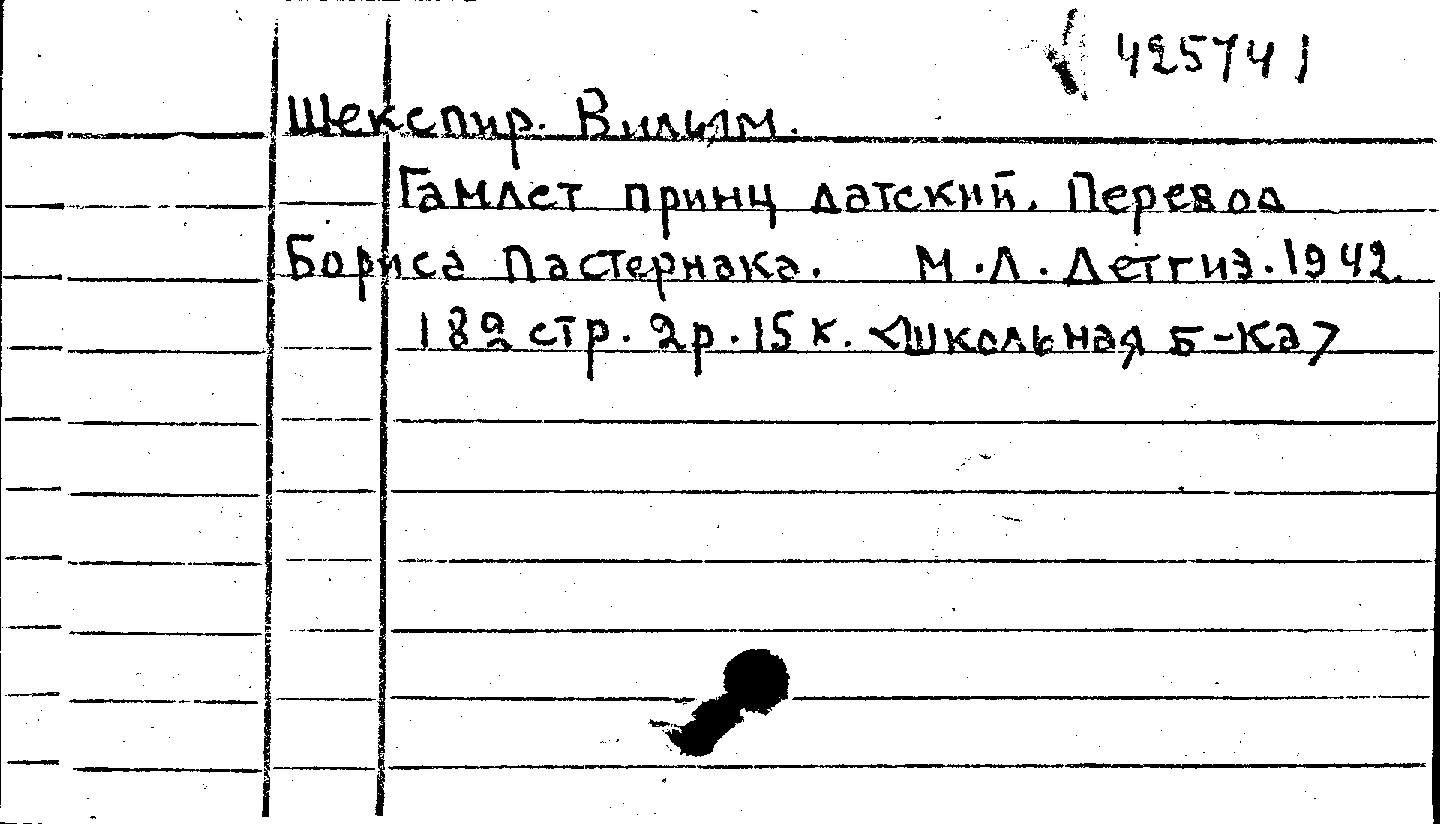 425741
Шекспир. Вильям.
Гамлет принц датский. Перевод
Бориса Пастернака. М.Л. Детгиз. 1942
182 стр. 2р. 15 к. <школьная б-ка>